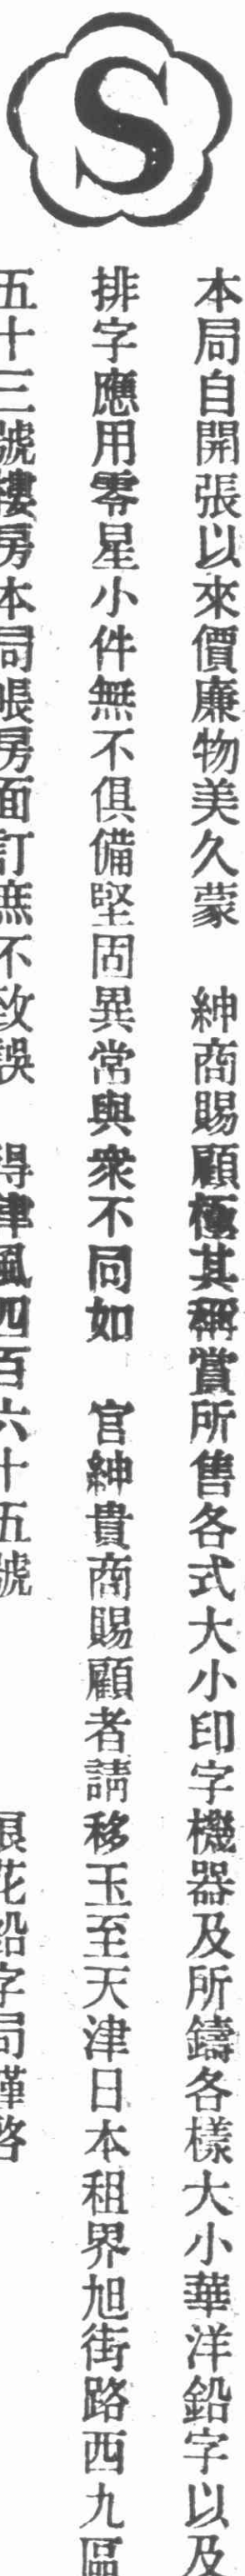 S
本局自開張以來價廉物美久蒙　紳商賜顧極其稱賞所售各式大小印字機器及所鑄各樣大小華洋鉛字以及
排字應用零星小件無不俱備堅固異常與衆不同如　官紳貴商賜顧者請移玉至天津日本租界旭街路西九區
五十三號樓房本局帳房面訂庶不致誤　得律風四百六十五號　花鉛字局謹啓